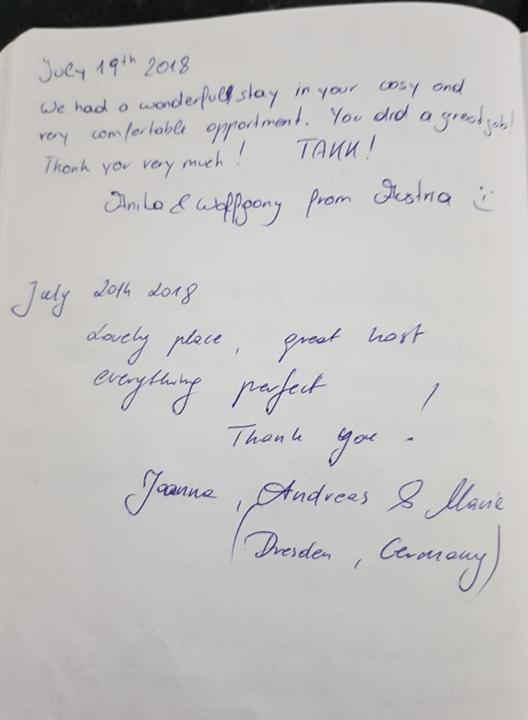 July 19th 2018
We had a wonderfull stay in your cosy and
very comfortable appartment. You did a great job!
Thank you very much! TAKK!
Anita & Wolfgang from Austria :)
July 20th 2018
Lovely place, great host
everything perfect
Thank you!
Joanna, Andreas & Marie
(Dresden, Germany)